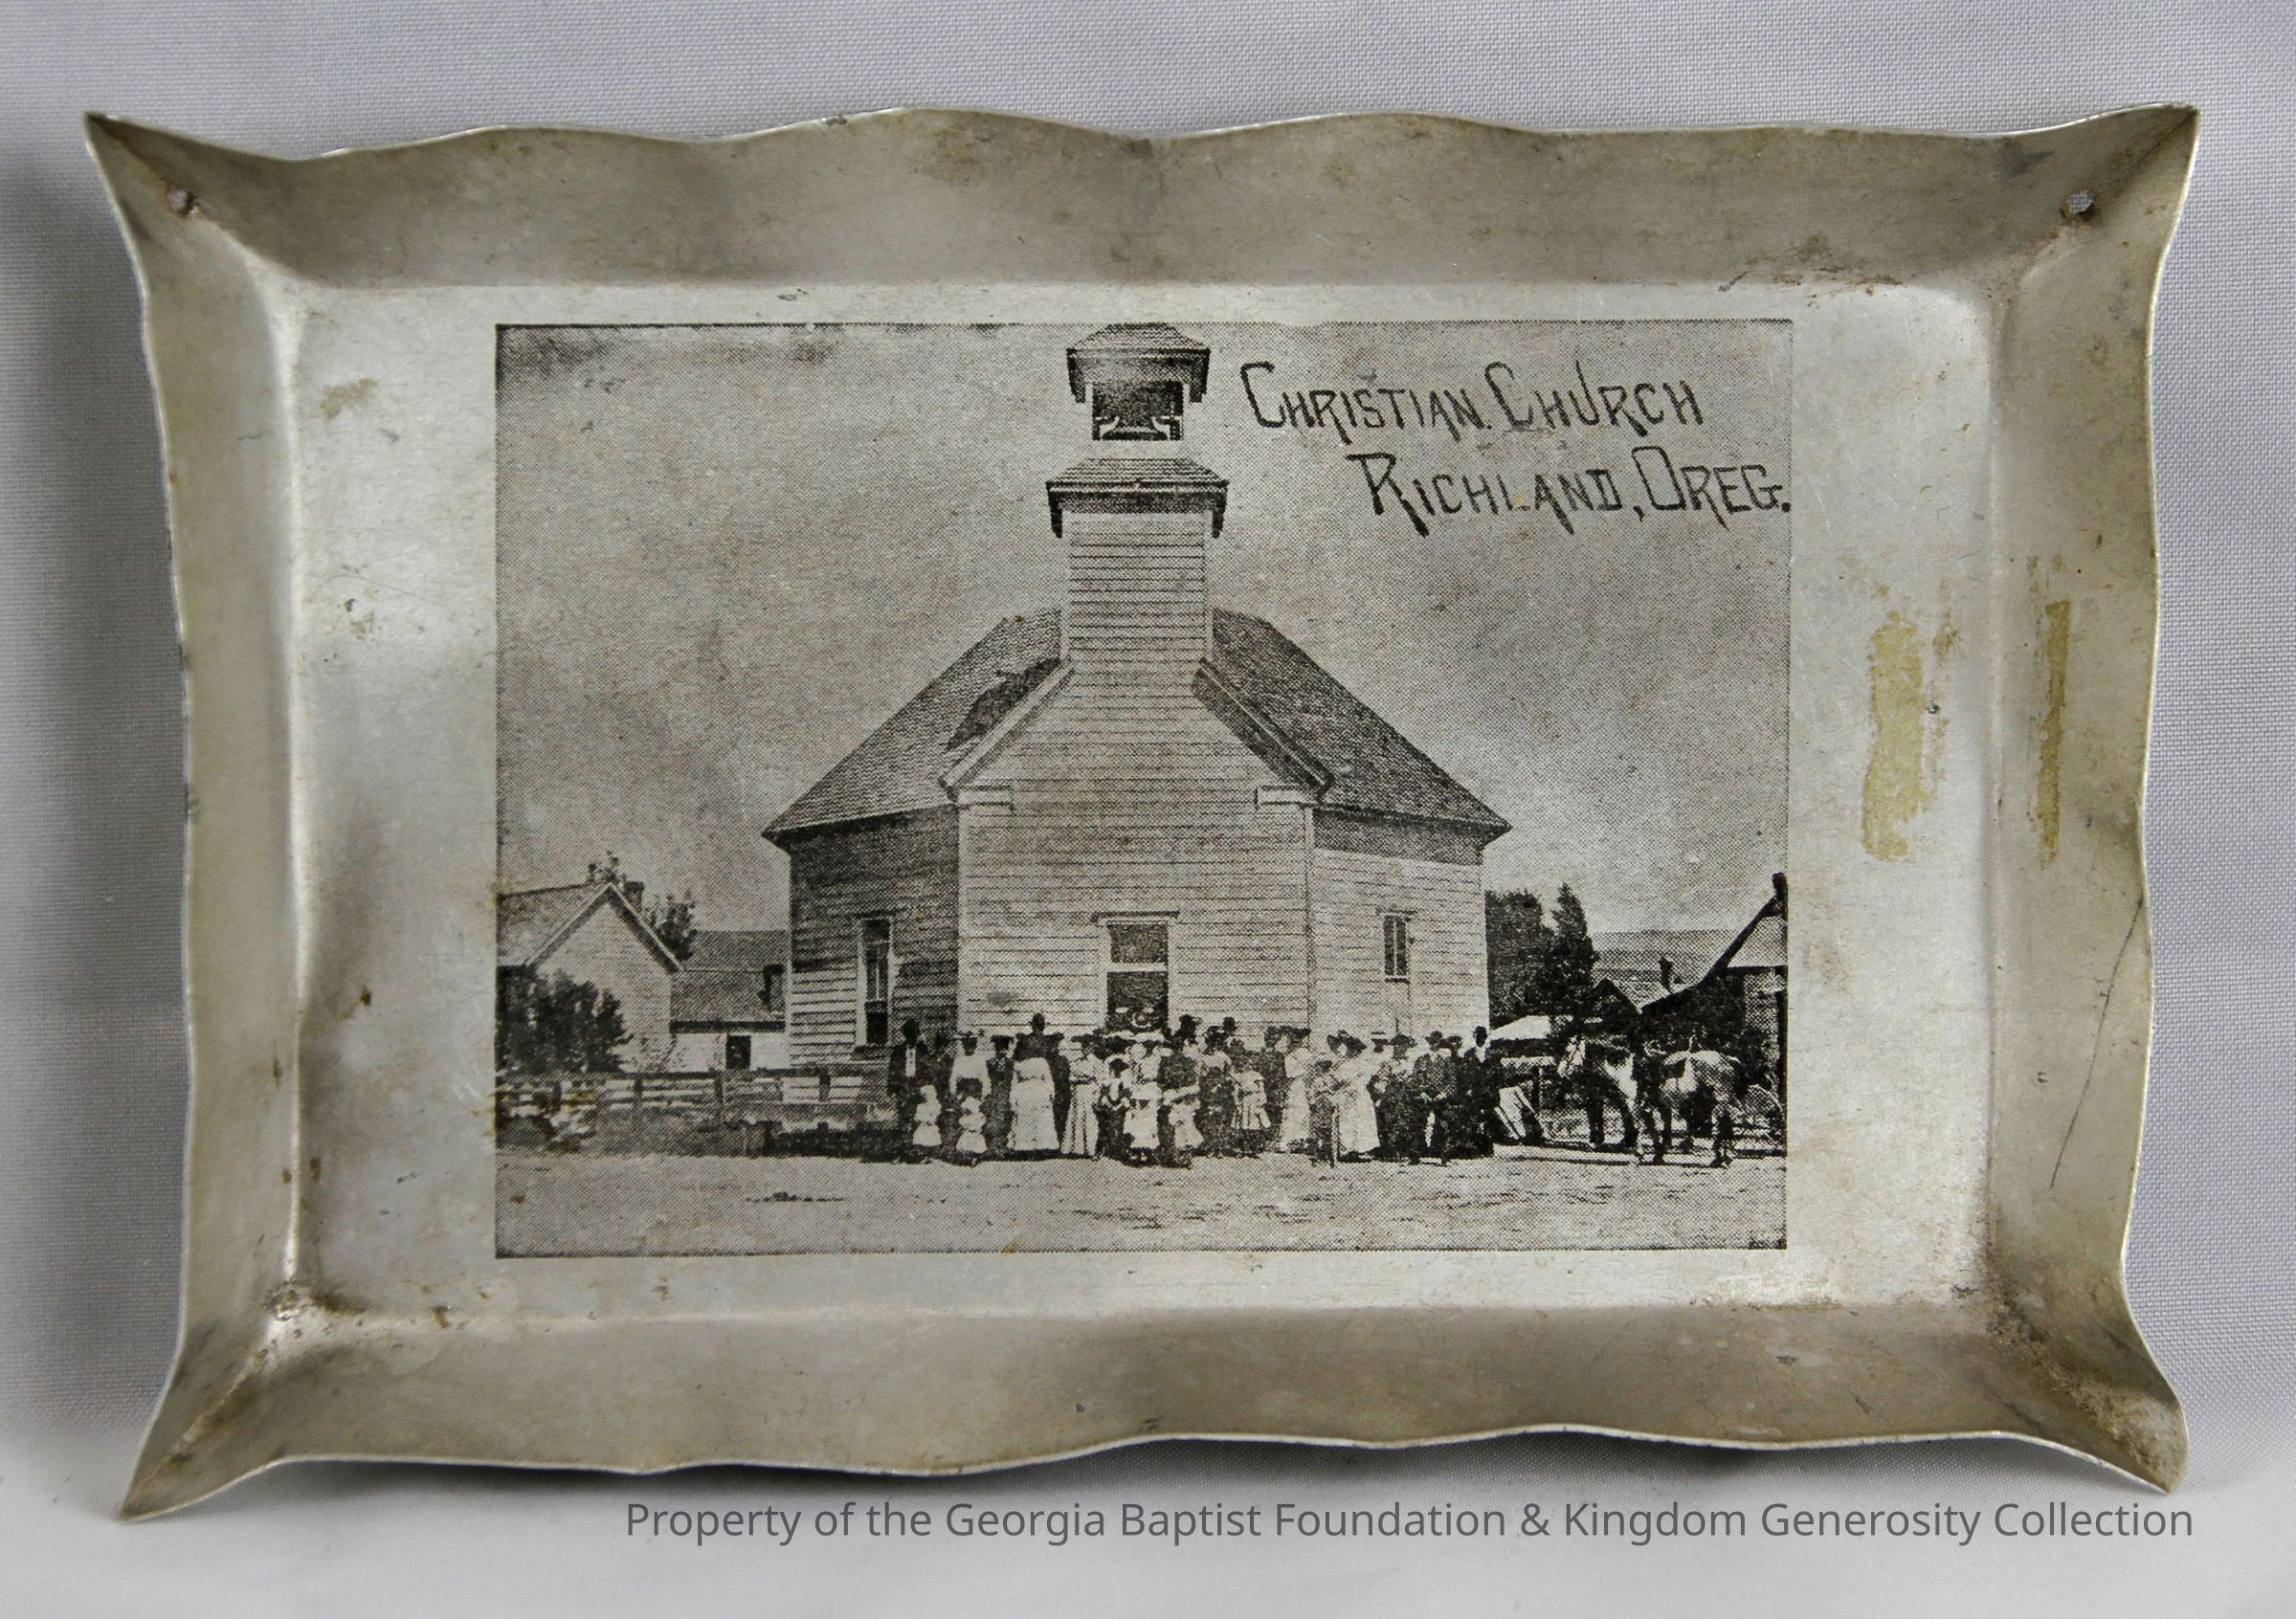 CHRISTIAN. CHURCH
RICHLAND, OREG.
Property of the Georgia Baptist Foundation & Kingdom Generosity Collection